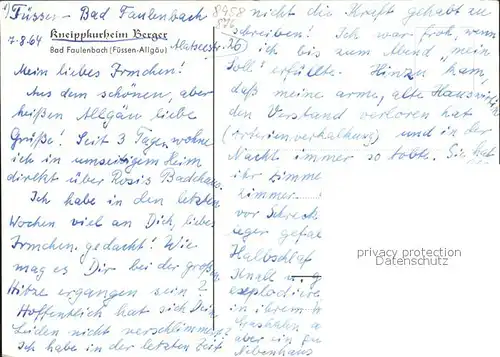 Füssen - Bad Faulenbach
7.8.64
Kneippkurheim Berger
Bad Faulenbach (Füssen-Allgäu)
Alatseestr. 26
8958
Mein liebes Irmchen!
Aus dem schönen, aber
heißen Allgäu liebe
Grüße! Seit 3 Tagen wohne
ich in umseitigem Heim
direkt über Rosis Badehaus.
Ich habe in den letzten
Wochen viel an Dich, liebes
Irmchen, gedacht! Wie
mag es Dir bei der großen
Hitze ergangen sein?
Hoffentlich hat sich Dein
Leiden nicht verschlimmert?
Ich habe in der letzten Zeit
nicht die Kraft gehabt zu
schreiben! Ich war froh, wenn
ich bis zum Abend "mein
Soll" erfüllte. Hinzu kam,
daß meine arme, alte Hauswirtin
den Verstand verloren hat
(Arterienverkalkung) und in der
Nacht immer so tobte. Sie hat
ihr Zimmer
Zimmer
vor Schreck
gefal
Halbschlaf
Knall
explodiere
in ihrem
Gashahn a
aber ein
Nebenhaus
privacy protection
Datenschutz